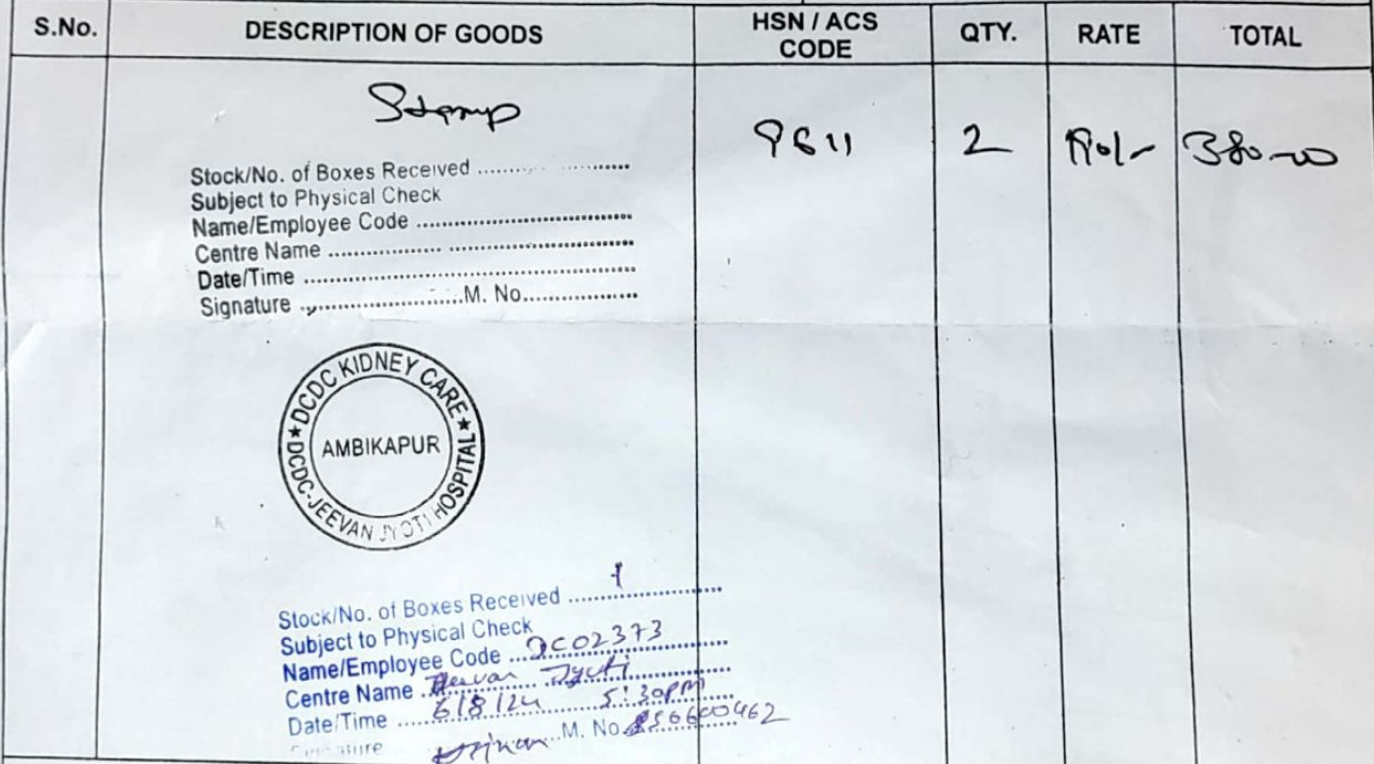 S.No. DESCRIPTION OF GOODS HSN / ACS CODE QTY. RATE TOTAL
Stamp 9611 2 190/- 380-00
Stock/No. of Boxes Received ....................
Subject to Physical Check
Name/Employee Code ....................
Centre Name ....................
Date/Time ....................
Signature ....................M. No....................
★DCDC KIDNEY CARE★
AMBIKAPUR
DCDC-JEEVAN JYOTI HOSPITAL
Stock/No. of Boxes Received .................... 1
Subject to Physical Check
Name/Employee Code ....DC02373
Centre Name ....Jeevan Jyoti
Date/Time ....6/8/24 5:30pm
Signature M. No.